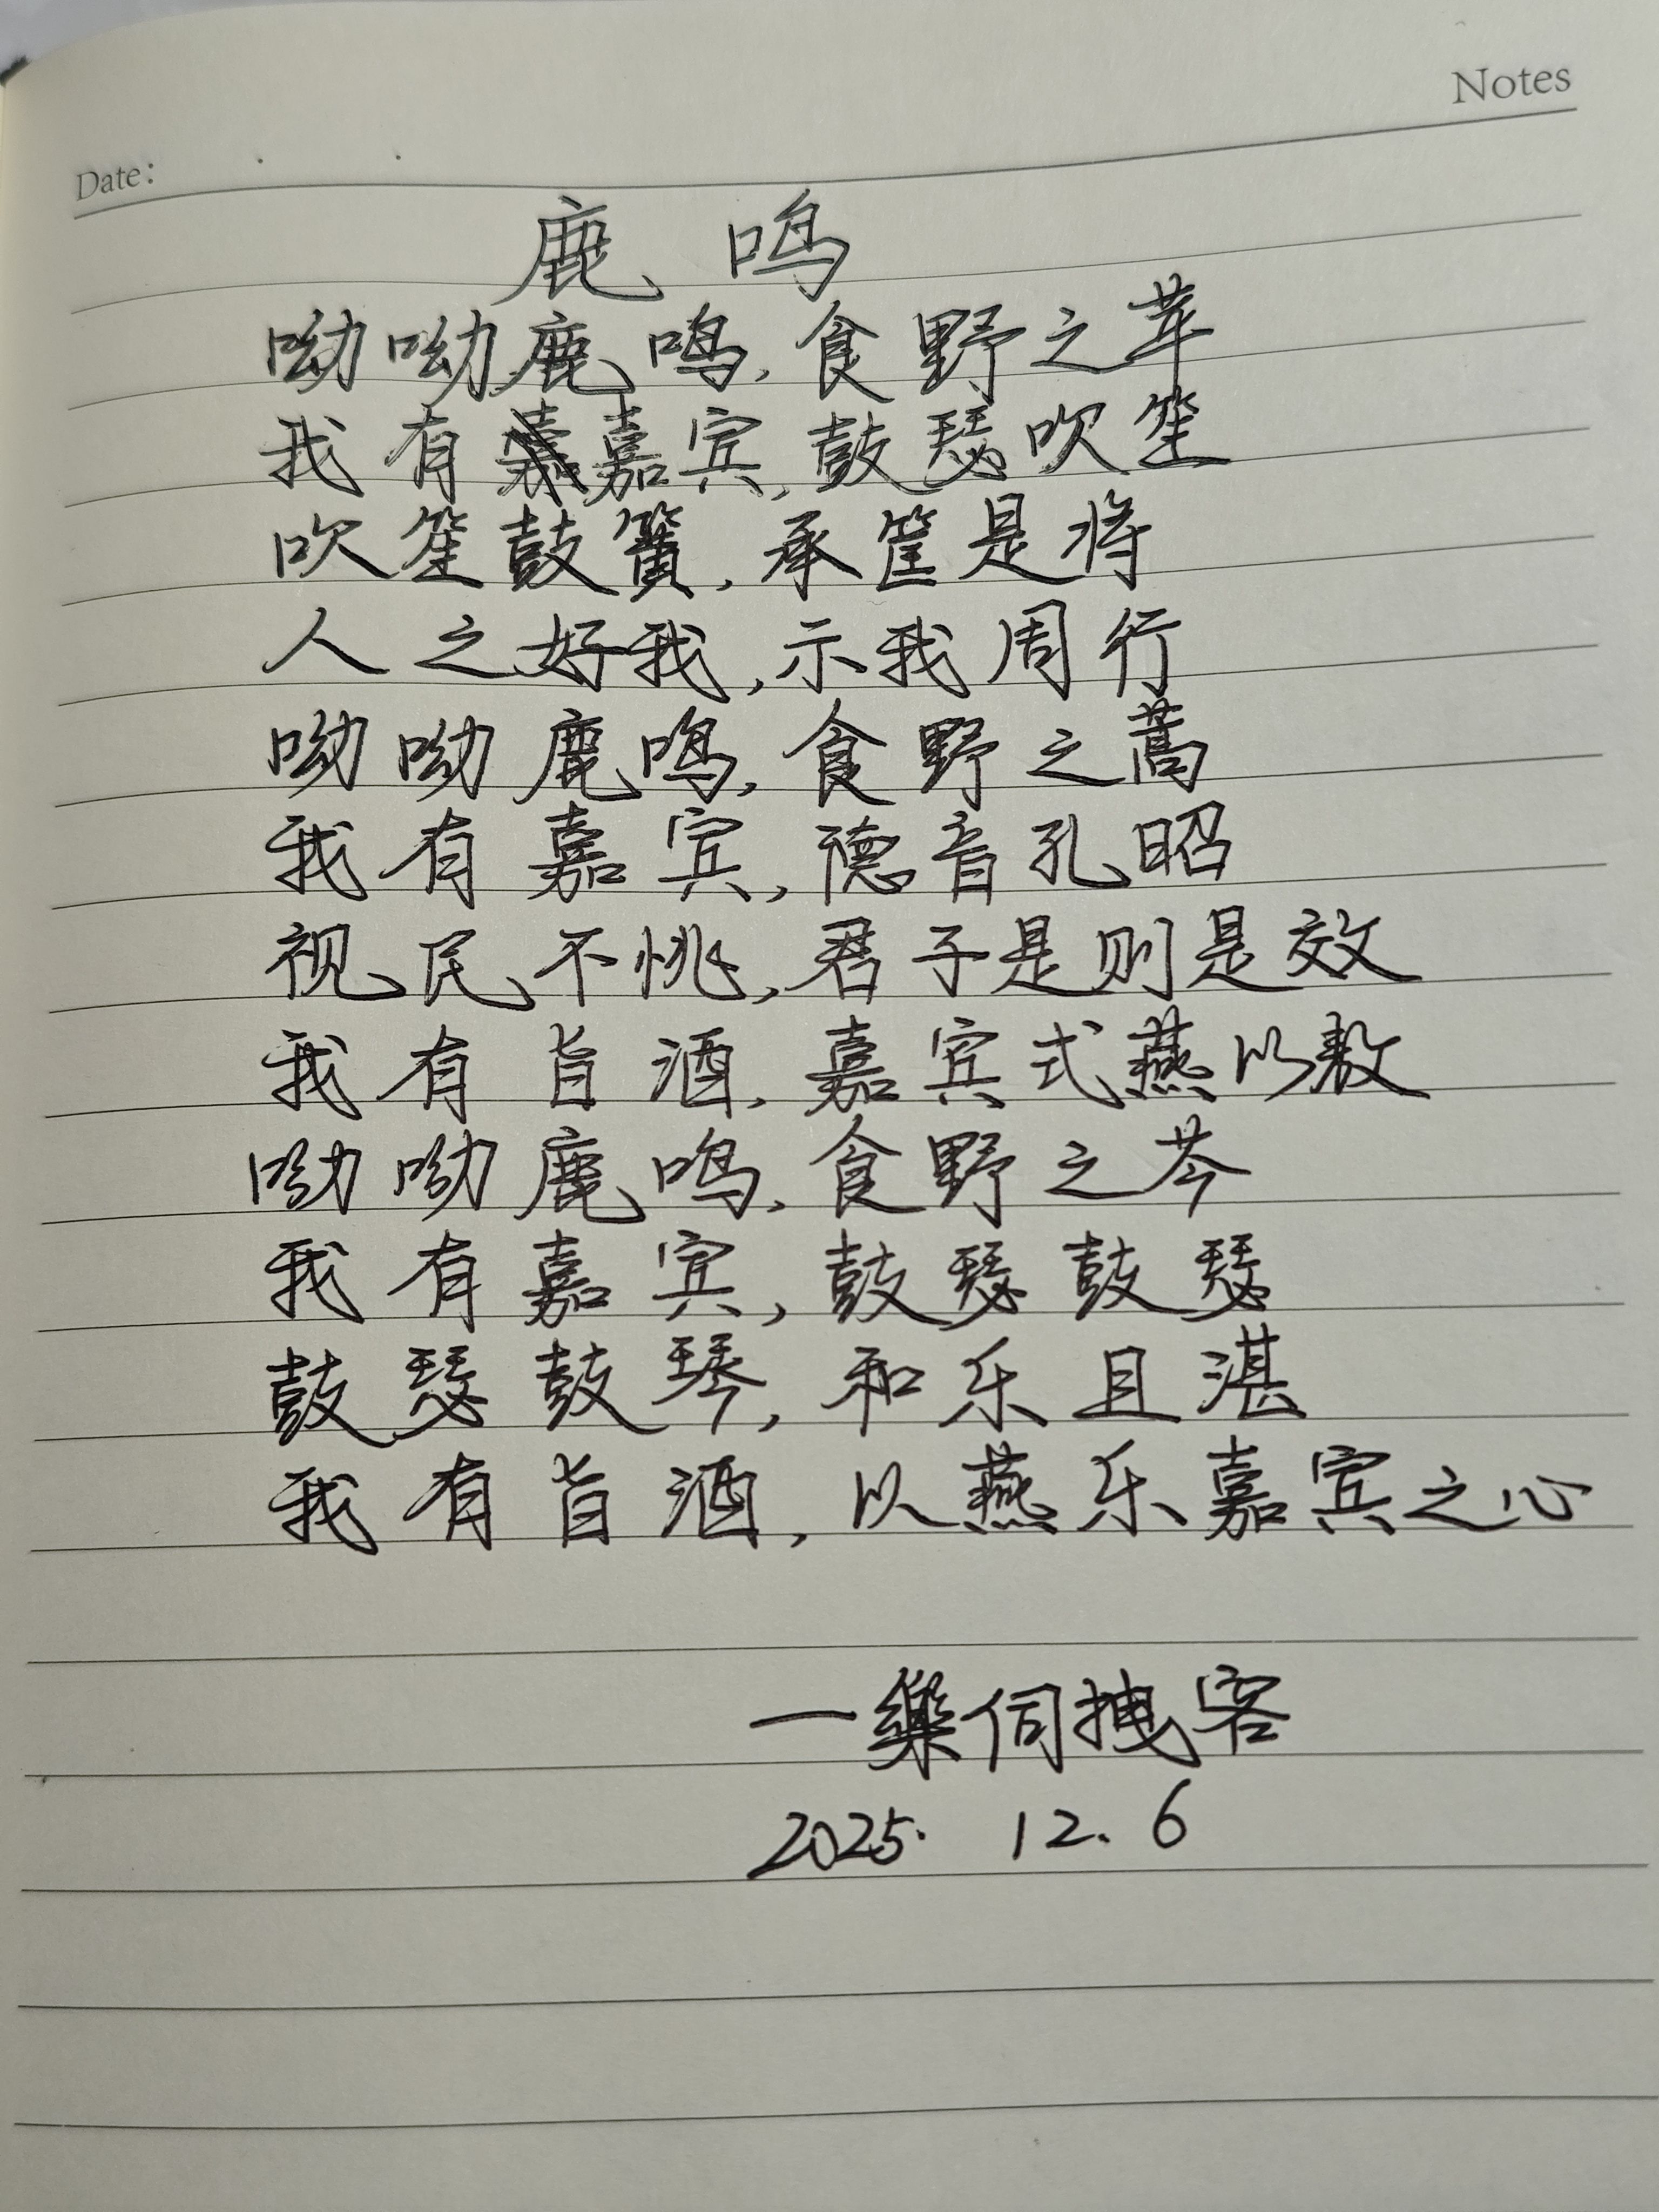 Notes
Date:
鹿鸣
呦呦鹿鸣,食野之苹
我有嘉宾,鼓瑟吹笙
吹笙鼓簧,承筐是将
人之好我,示我周行
呦呦鹿鸣,食野之蒿
我有嘉宾,德音孔昭
视民不恌,君子是则是效
我有旨酒,嘉宾式燕以敖
呦呦鹿鸣,食野之芩
我有嘉宾,鼓瑟鼓瑟
鼓瑟鼓琴,和乐且湛
我有旨酒,以燕乐嘉宾之心
一樂伺拽客
2025. 12. 6